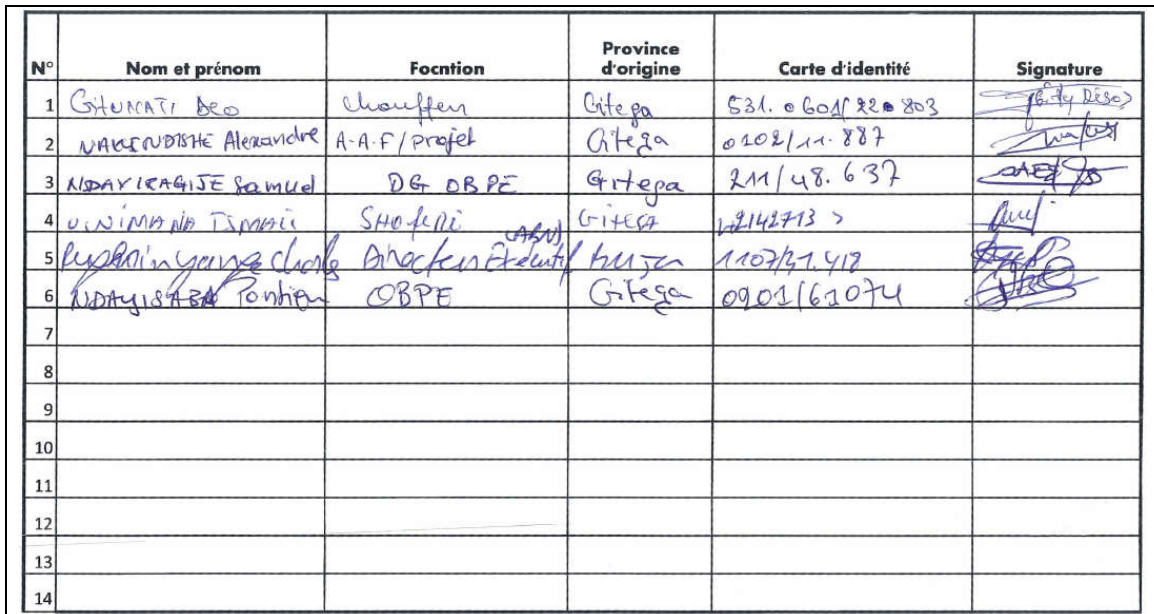 N° Nom et prénom Focntion Province d'origine Carte d'identité Signature
1 GITUNATI Deo Chauffeur Gitega 531.0601/220803
2 Alexandre A.A.F/projet Gitega 0102/11.887
3 NDAYIRAGIJE Samuel DG OBPE Gitega 211/48.637
4 UWIMANA ISMAIL Gitega
5 Directeur Exécutif (ABN) 1107/31.418
6 NDAYISABA Pontien OBPE Gitega 0901/61074
7
8
9
10
11
12
13
14